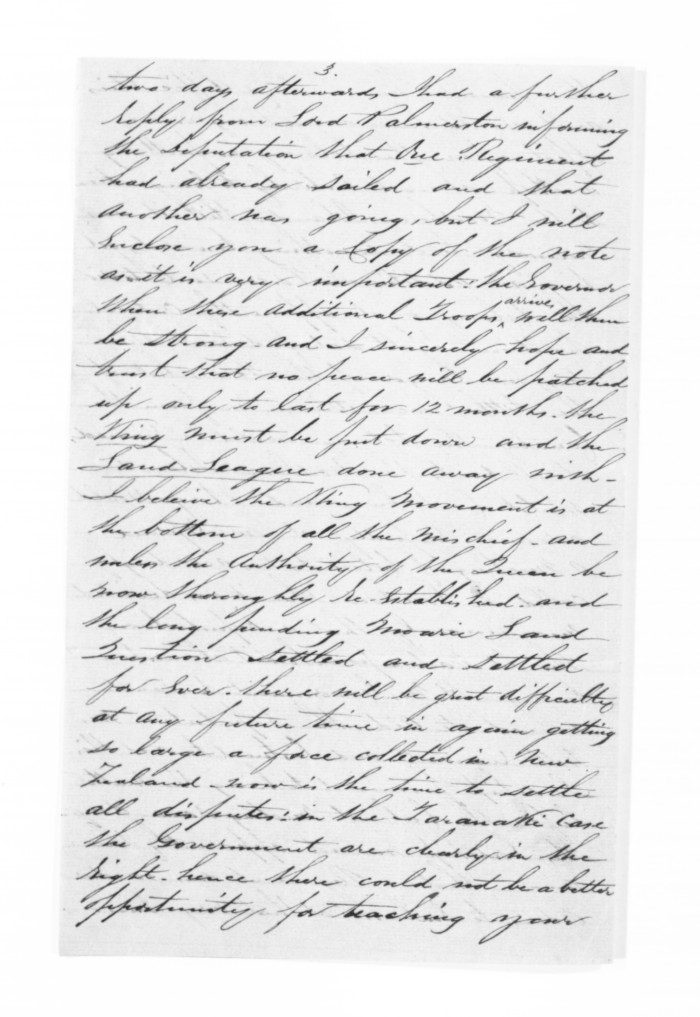 3.
two days afterwards I had a further
reply from Lord Palmerston informing
the Deputation that One Regiment
had already sailed and that
another was going, but I will
enclose you a Copy of the note
as it is very important: the Governor
when these additional Troops arrive, will then
be strong and I sincerely hope and
trust that no peace will be patched
up only to last for 12 months. the
King must be put down and the
Land League done away with -
I beleive the King Movement is at
the bottom of all the mischief - and
unless the Authority of the Queen be
now thoroughly re-established - and
the long pending Maorie Land
Question settled and settled
for ever. there will be great difficulty
at any future time in again getting
so large a force collected in New
Zealand - now is the time to settle
all disputes: in the Taranaki Case
the Government are clearly in the
right. hence there could not be a better
opportunity for teaching your